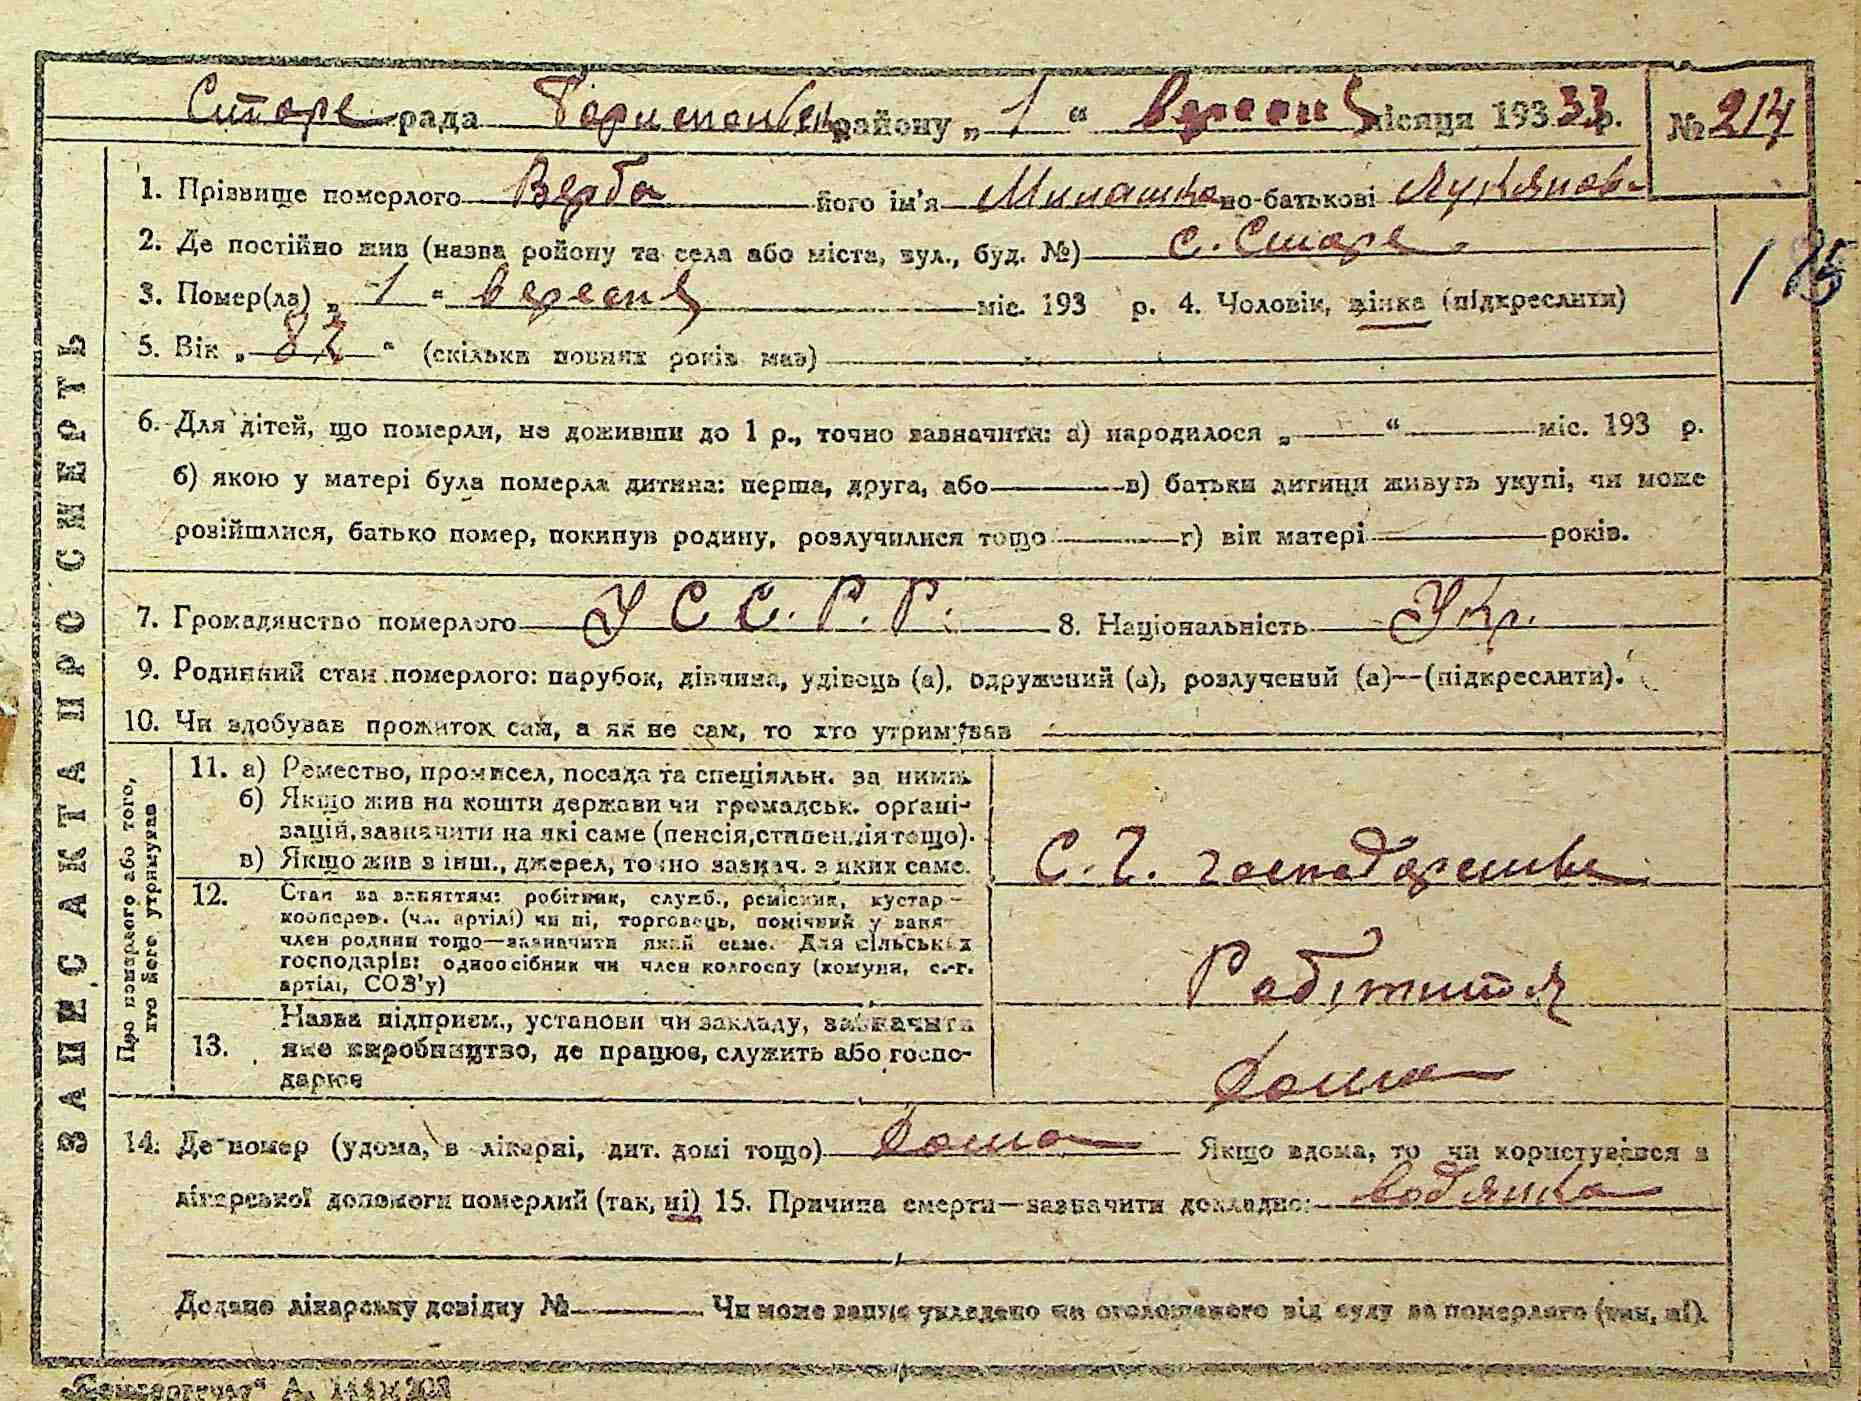 Старе рада Бориспольськ району „ 1 “ вересня місяця 193 33 р. № 214
1. Прізвище померлого Верба його ім'я Милашка по-батькові Лукянов.
2. Де постійно жив (назва району та села або міста, вул., буд. №) с. Старе.
185
3. Помер(ла) „ 1 “ вересня міс. 193 р. 4. Чоловік, жінка (підкреслити)
5. Вік „ 82 “ (скільки повних років мав)
6. Для дітей, що померли, не доживши до 1 р., точно зазначити: а) народилося „ “ міс. 193 р.
б) якою у матері була померла дитина: перша, друга, або в) батьки дитини живуть укупі, чи може
розійшлися, батько помер, покинув родину, розлучилися тощо г) вік матері років.
7. Громадянство померлого У С С. Р. Р. 8. Національність Укр.
9. Родинний стан померлого: парубок, дівчина, удівець (а), одружений (а), розлучений (а)—(підкреслити).
10. Чи здобував прожиток сам, а як не сам, то хто утримував
ЗАПИС АКТА ПРО СМЕРТЬ
Про померлого або того,
хто його утримував
11. а) Ремество, промисел, посада та спеціяльн. за ними.
б) Якщо жив на кошти держави чи громадськ. органі-
зацій, зазначити на які саме (пенсія, стипендія тощо).
в) Якщо жив з інш., джерел, точно зазнач. з яких саме.
С. Г. господарство
12. Стан за заняттям: робітник, служб., ремісник, кустар—
кооперов. (чл. артілі) чи ні, торговець, помічний у занят
член родини тощо—зазначити який саме. Для сільських
господарів: одноосібник чи член колгоспу (комуни, с.-г.
артілі, СОЗ'у)
Робітниця
13. Назва підприєм., установи чи закладу, зазначити
яке виробництво, де працює, служить або госпо-
дарює
дома
14. Де помер (удома, в лікарні, дит. домі тощо) дома Якщо вдома, то чи користувався з
лікарської допомоги померлий (так, ні) 15. Причина смерти—зазначити докладно: водянка
Додано лікарську довідку № Чи може запис укладено на оголошеного від суду за померлого (так, ні).
А.